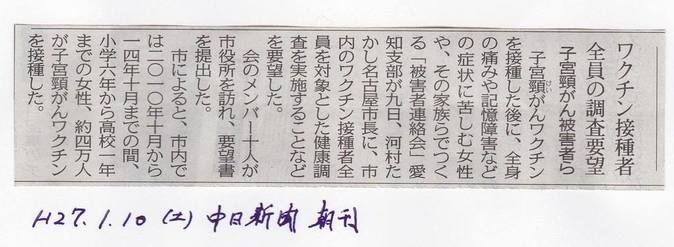 ワクチン接種者
全員の調査要望
子宮頸がん被害者ら
子宮頸がんワクチン
けい
を接種した後に、全身
の痛みや記憶障害など
の症状に苦しむ女性
や、その家族らでつく
る「被害者連絡会」愛
知支部が九日、河村た
かし名古屋市長に、市
内のワクチン接種者全
員を対象とした健康調
査を実施することなど
を要望した。
会のメンバー十人が
市役所を訪れ、要望書
を提出した。
市によると、市内で
は二〇一〇年十月から
一四年十月までの間、
小学六年から高校一年
までの女性、約四万人
が子宮頸がんワクチン
を接種した。
H27.1.10（土）中日新聞 朝刊